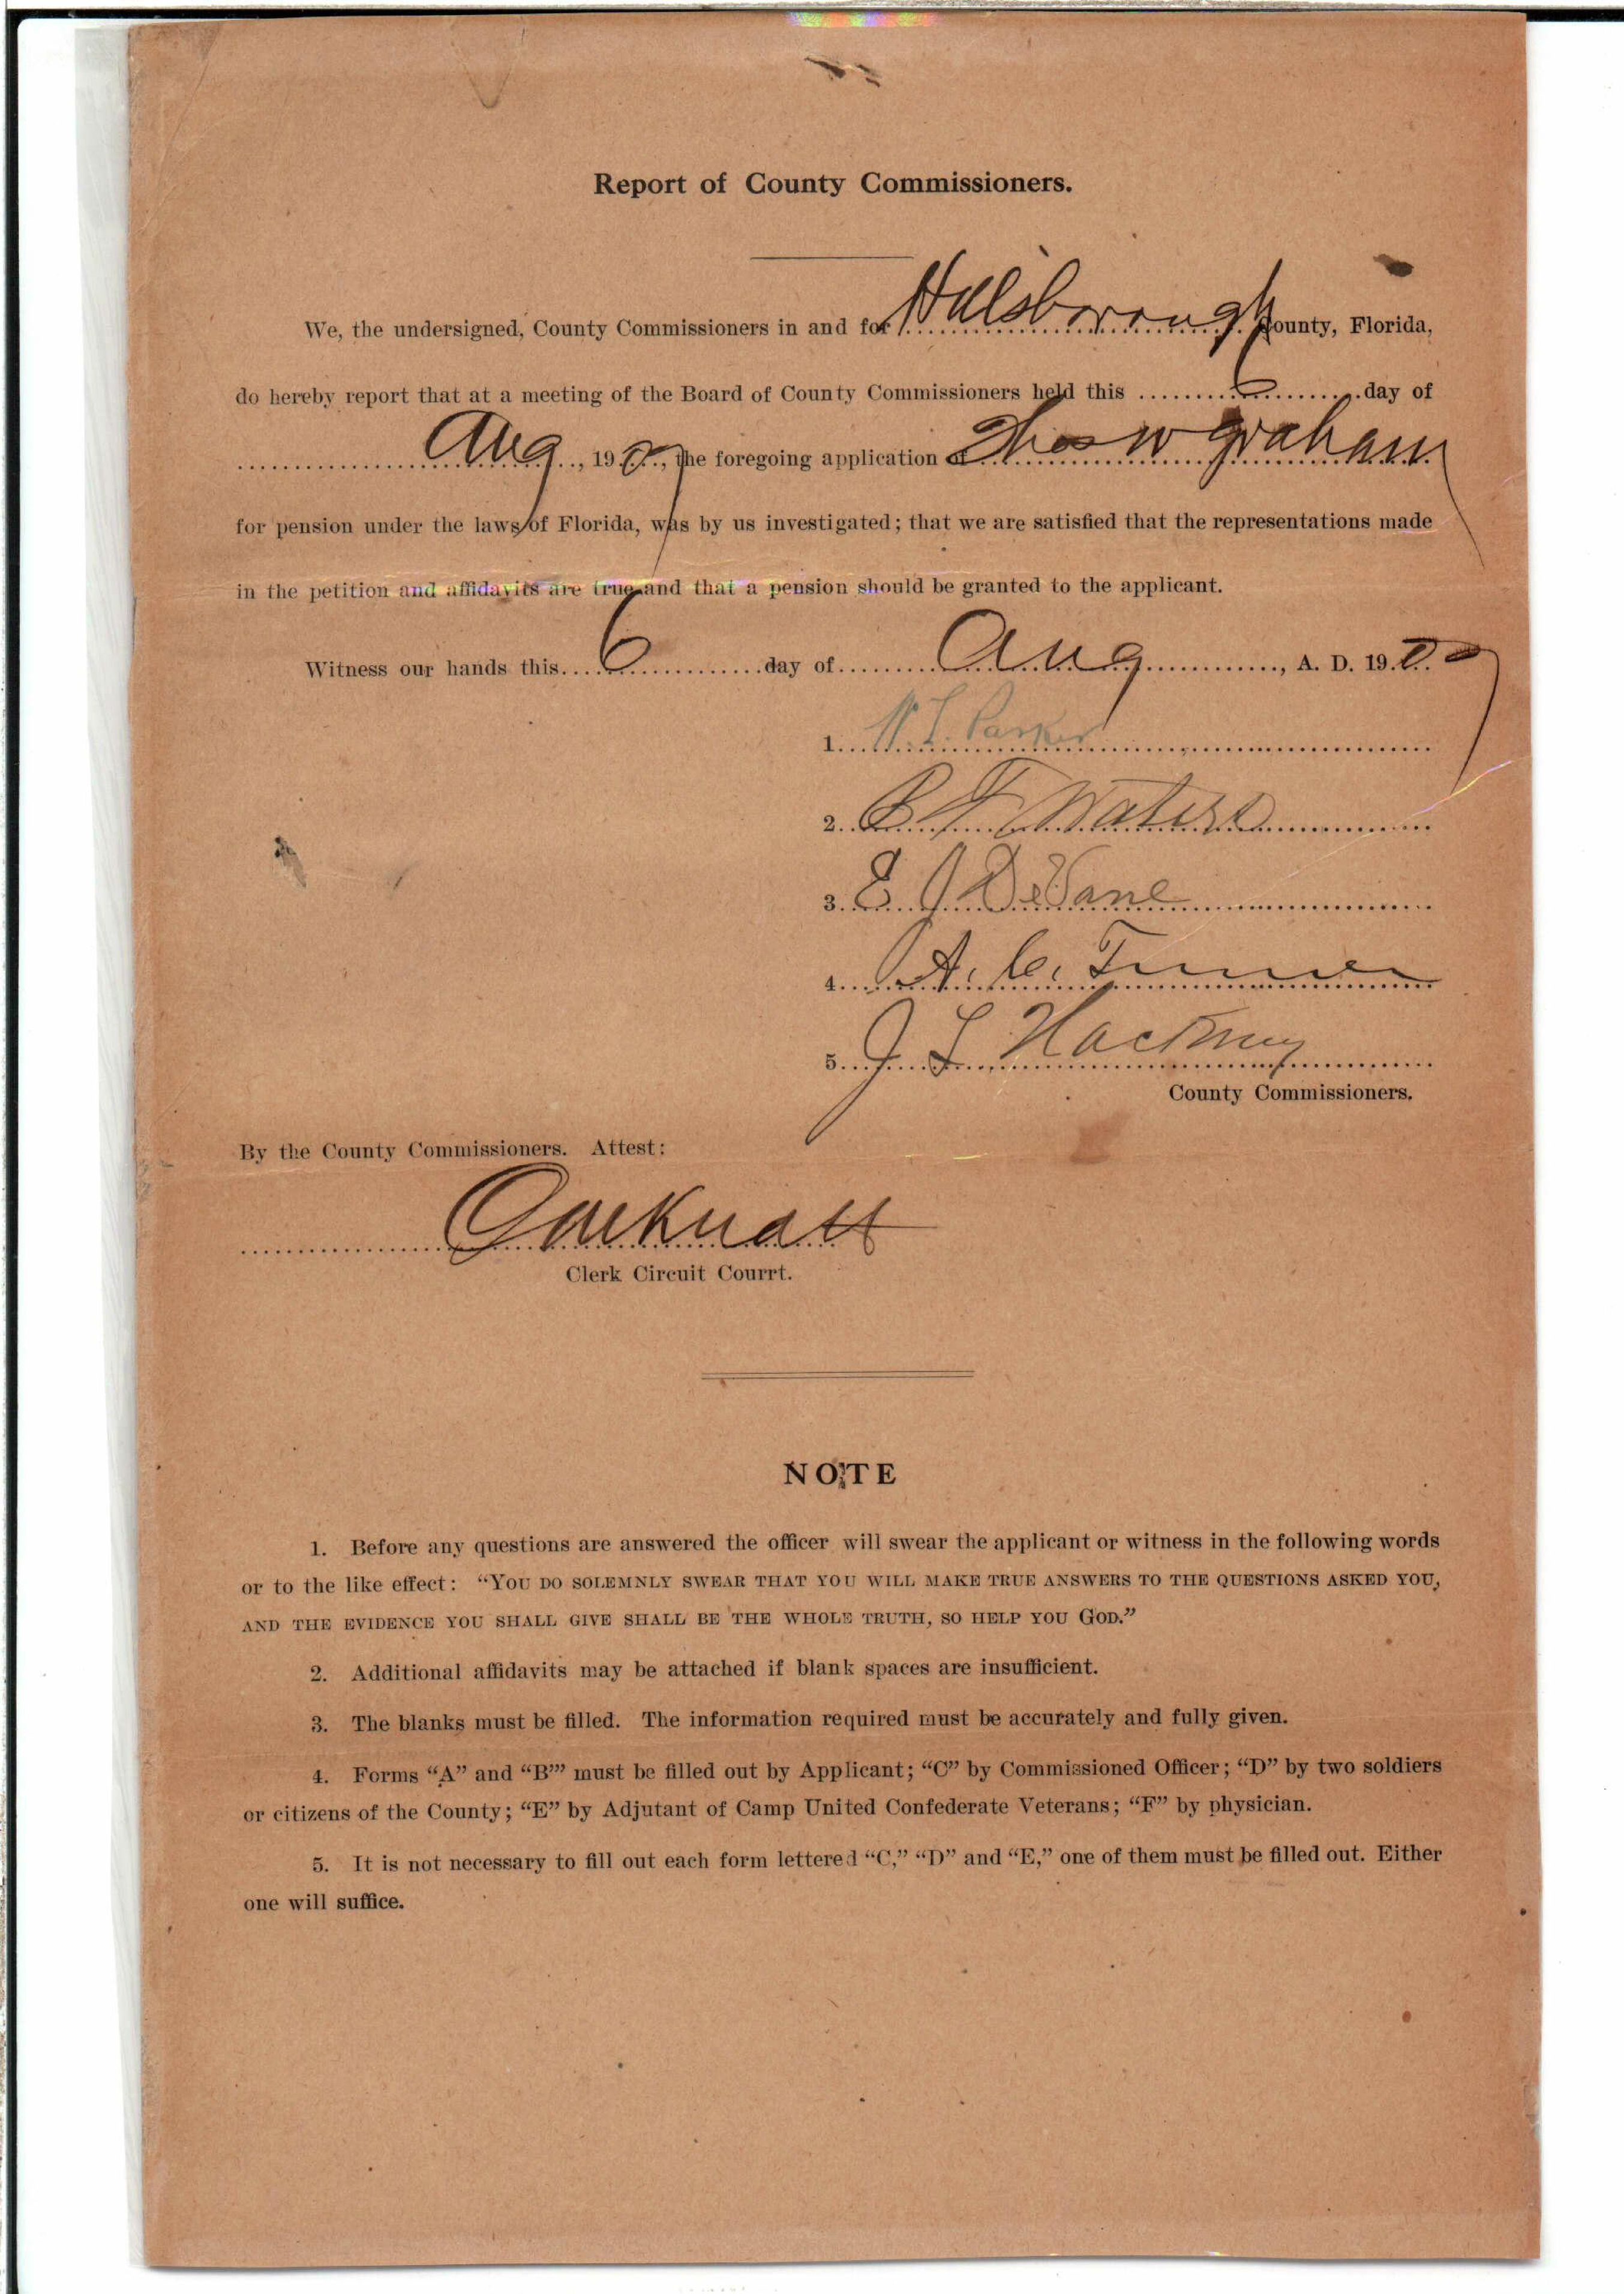 Report of County Commissioners.
We, the undersigned, County Commissioners in and for Hillsborough County, Florida,
do hereby report that at a meeting of the Board of County Commissioners held this 6 day of
Aug, 1907, the foregoing application of Thos W Graham
for pension under the laws of Florida, was by us investigated; that we are satisfied that the representations made
in the petition and affidavits are true and that a pension should be granted to the applicant.
Witness our hands this 6 day of Aug, A. D. 1907
1. W. L. Parker
2. B F Waters
3. E J DeVane
4. A. C. Turner
5. J L Hackney
County Commissioners.
By the County Commissioners. Attest:
Clerk Circuit Courrt.
NOTE
1. Before any questions are answered the officer will swear the applicant or witness in the following words
or to the like effect: “YOU DO SOLEMNLY SWEAR THAT YOU WILL MAKE TRUE ANSWERS TO THE QUESTIONS ASKED YOU,
AND THE EVIDENCE YOU SHALL GIVE SHALL BE THE WHOLE TRUTH, SO HELP YOU GOD.”
2. Additional affidavits may be attached if blank spaces are insufficient.
3. The blanks must be filled. The information required must be accurately and fully given.
4. Forms “A” and “B”’ must be filled out by Applicant; “C” by Commissioned Officer; “D” by two soldiers
or citizens of the County; “E” by Adjutant of Camp United Confederate Veterans; “F” by physician.
5. It is not necessary to fill out each form lettered “C,” “D” and “E,” one of them must be filled out. Either
one will suffice.